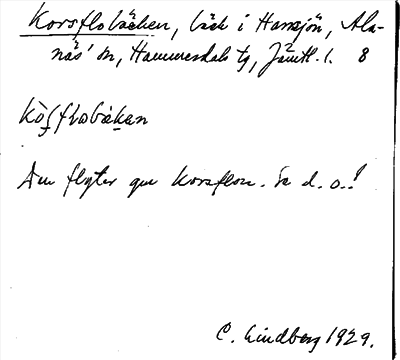 Korsflobäcken, bäck i Hansjön, Ala-
näs' sn, Hammerdals tg, Jämtl. l. 8
Kòs̱flobäḵan
Den flyter gm Korsflon. Se d. o.!
C. Lindberg 1929.